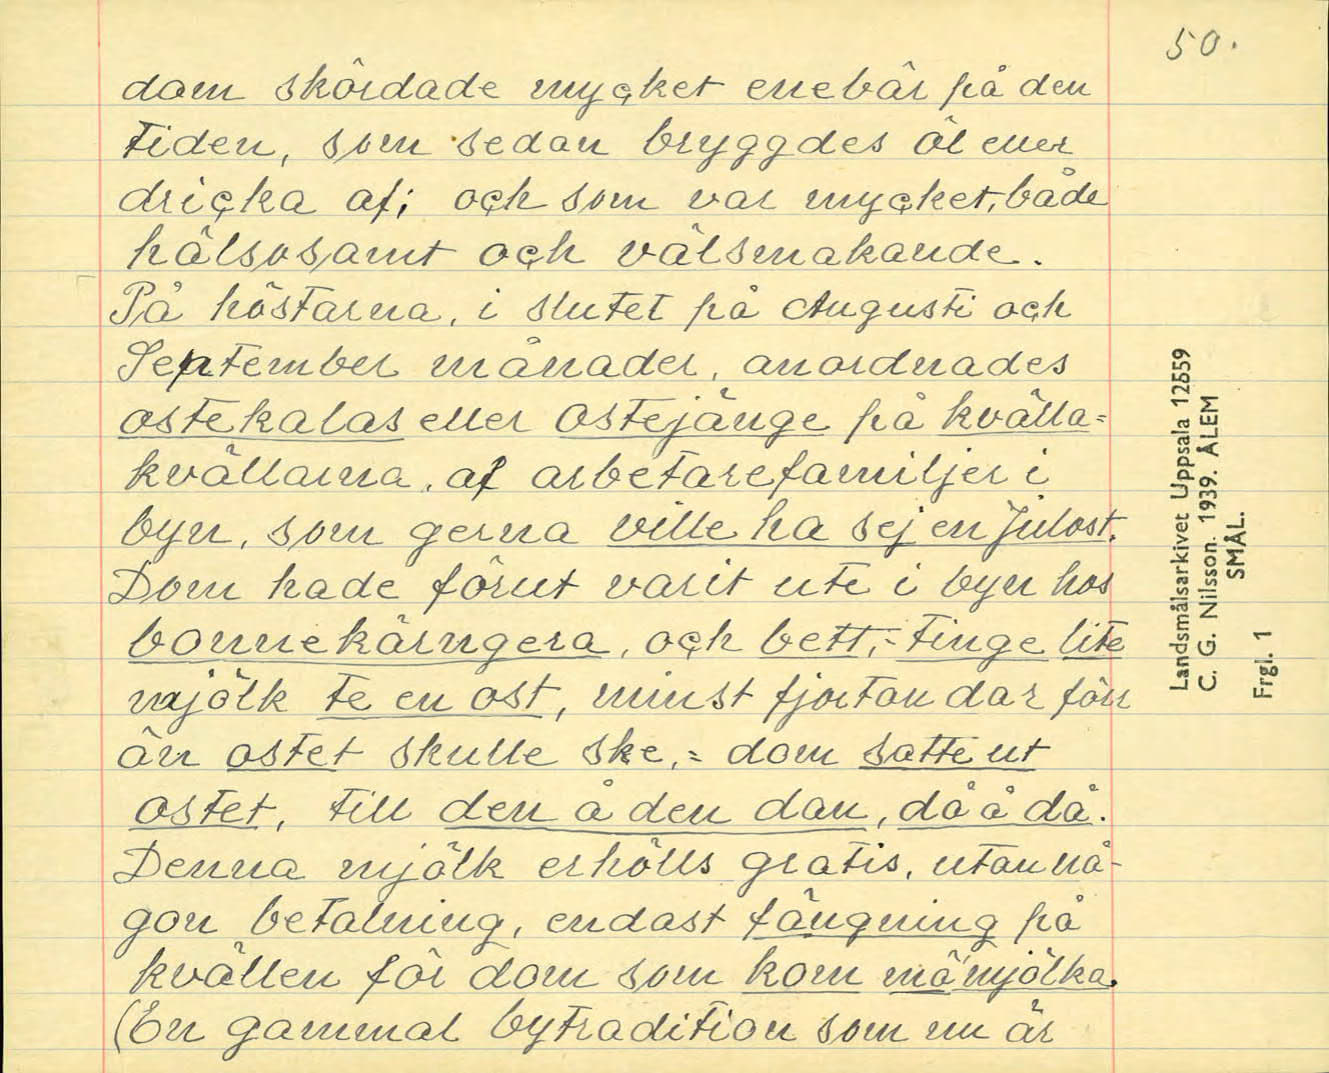 50.
dom skördade mycket enebär på den
tiden, som sedan bryggdes öl eller
dricka af; och som var mycket, både
hälsosamt och välsmakande.
På höstarna, i slutet på Augusti och
September månader, anordnades
ostekalas eller Ostejänge på kvälla=
kvällarna, af arbetarefamiljer i
byn, som gerna ville ha sej en Julost.
Dom hade förut varit ute i byn hos
bonnekärngera, och bett,- tinge lite
mjölk te en ost, minst fjortan dar förr
än ostet skulle ske,= dom satte ut
ostet, till den å den dan, då å då.
Denna mjölk erhölls gratis, utan nå-
gon betalning, endast fängning på
kvällen för dom som kom mä mjölka.
(En gammal bytradition som nu är
Landsmålsarkivet Uppsala 12659
C. G. Nilsson. 1939. ÅLEM
SMÅL.
Frgl. 1